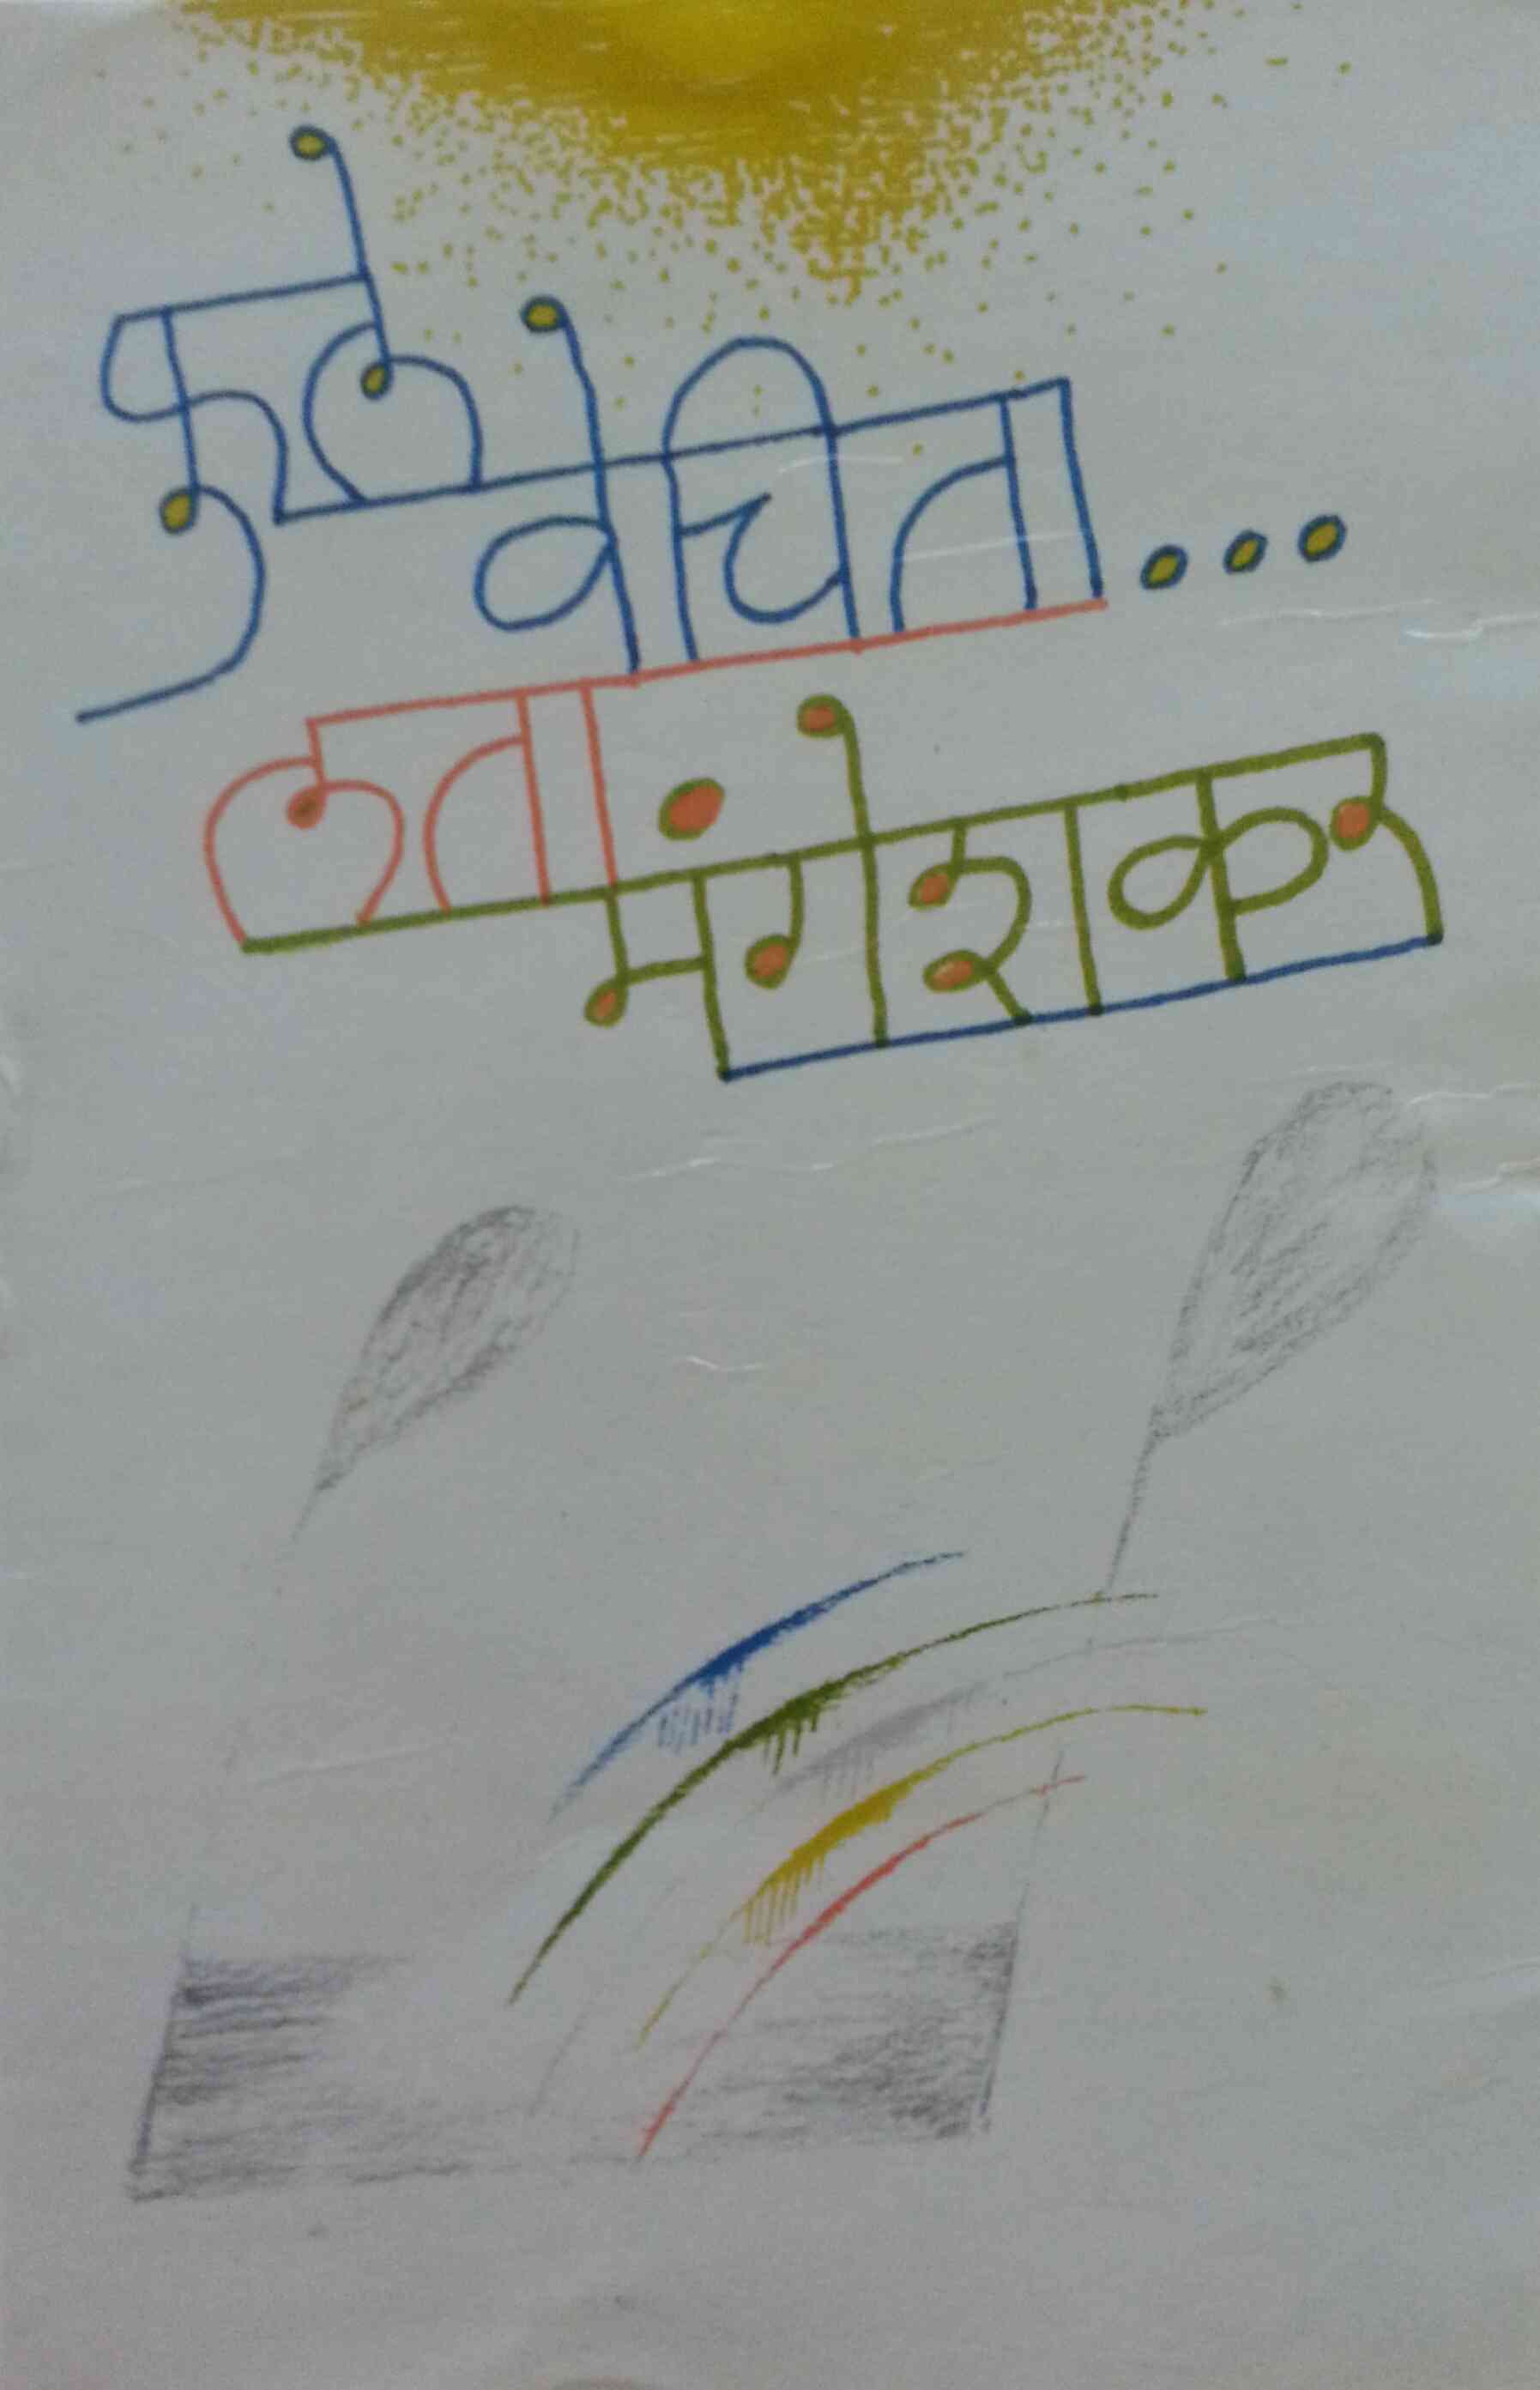 फुले वेचिता...
लता मंगेशकर